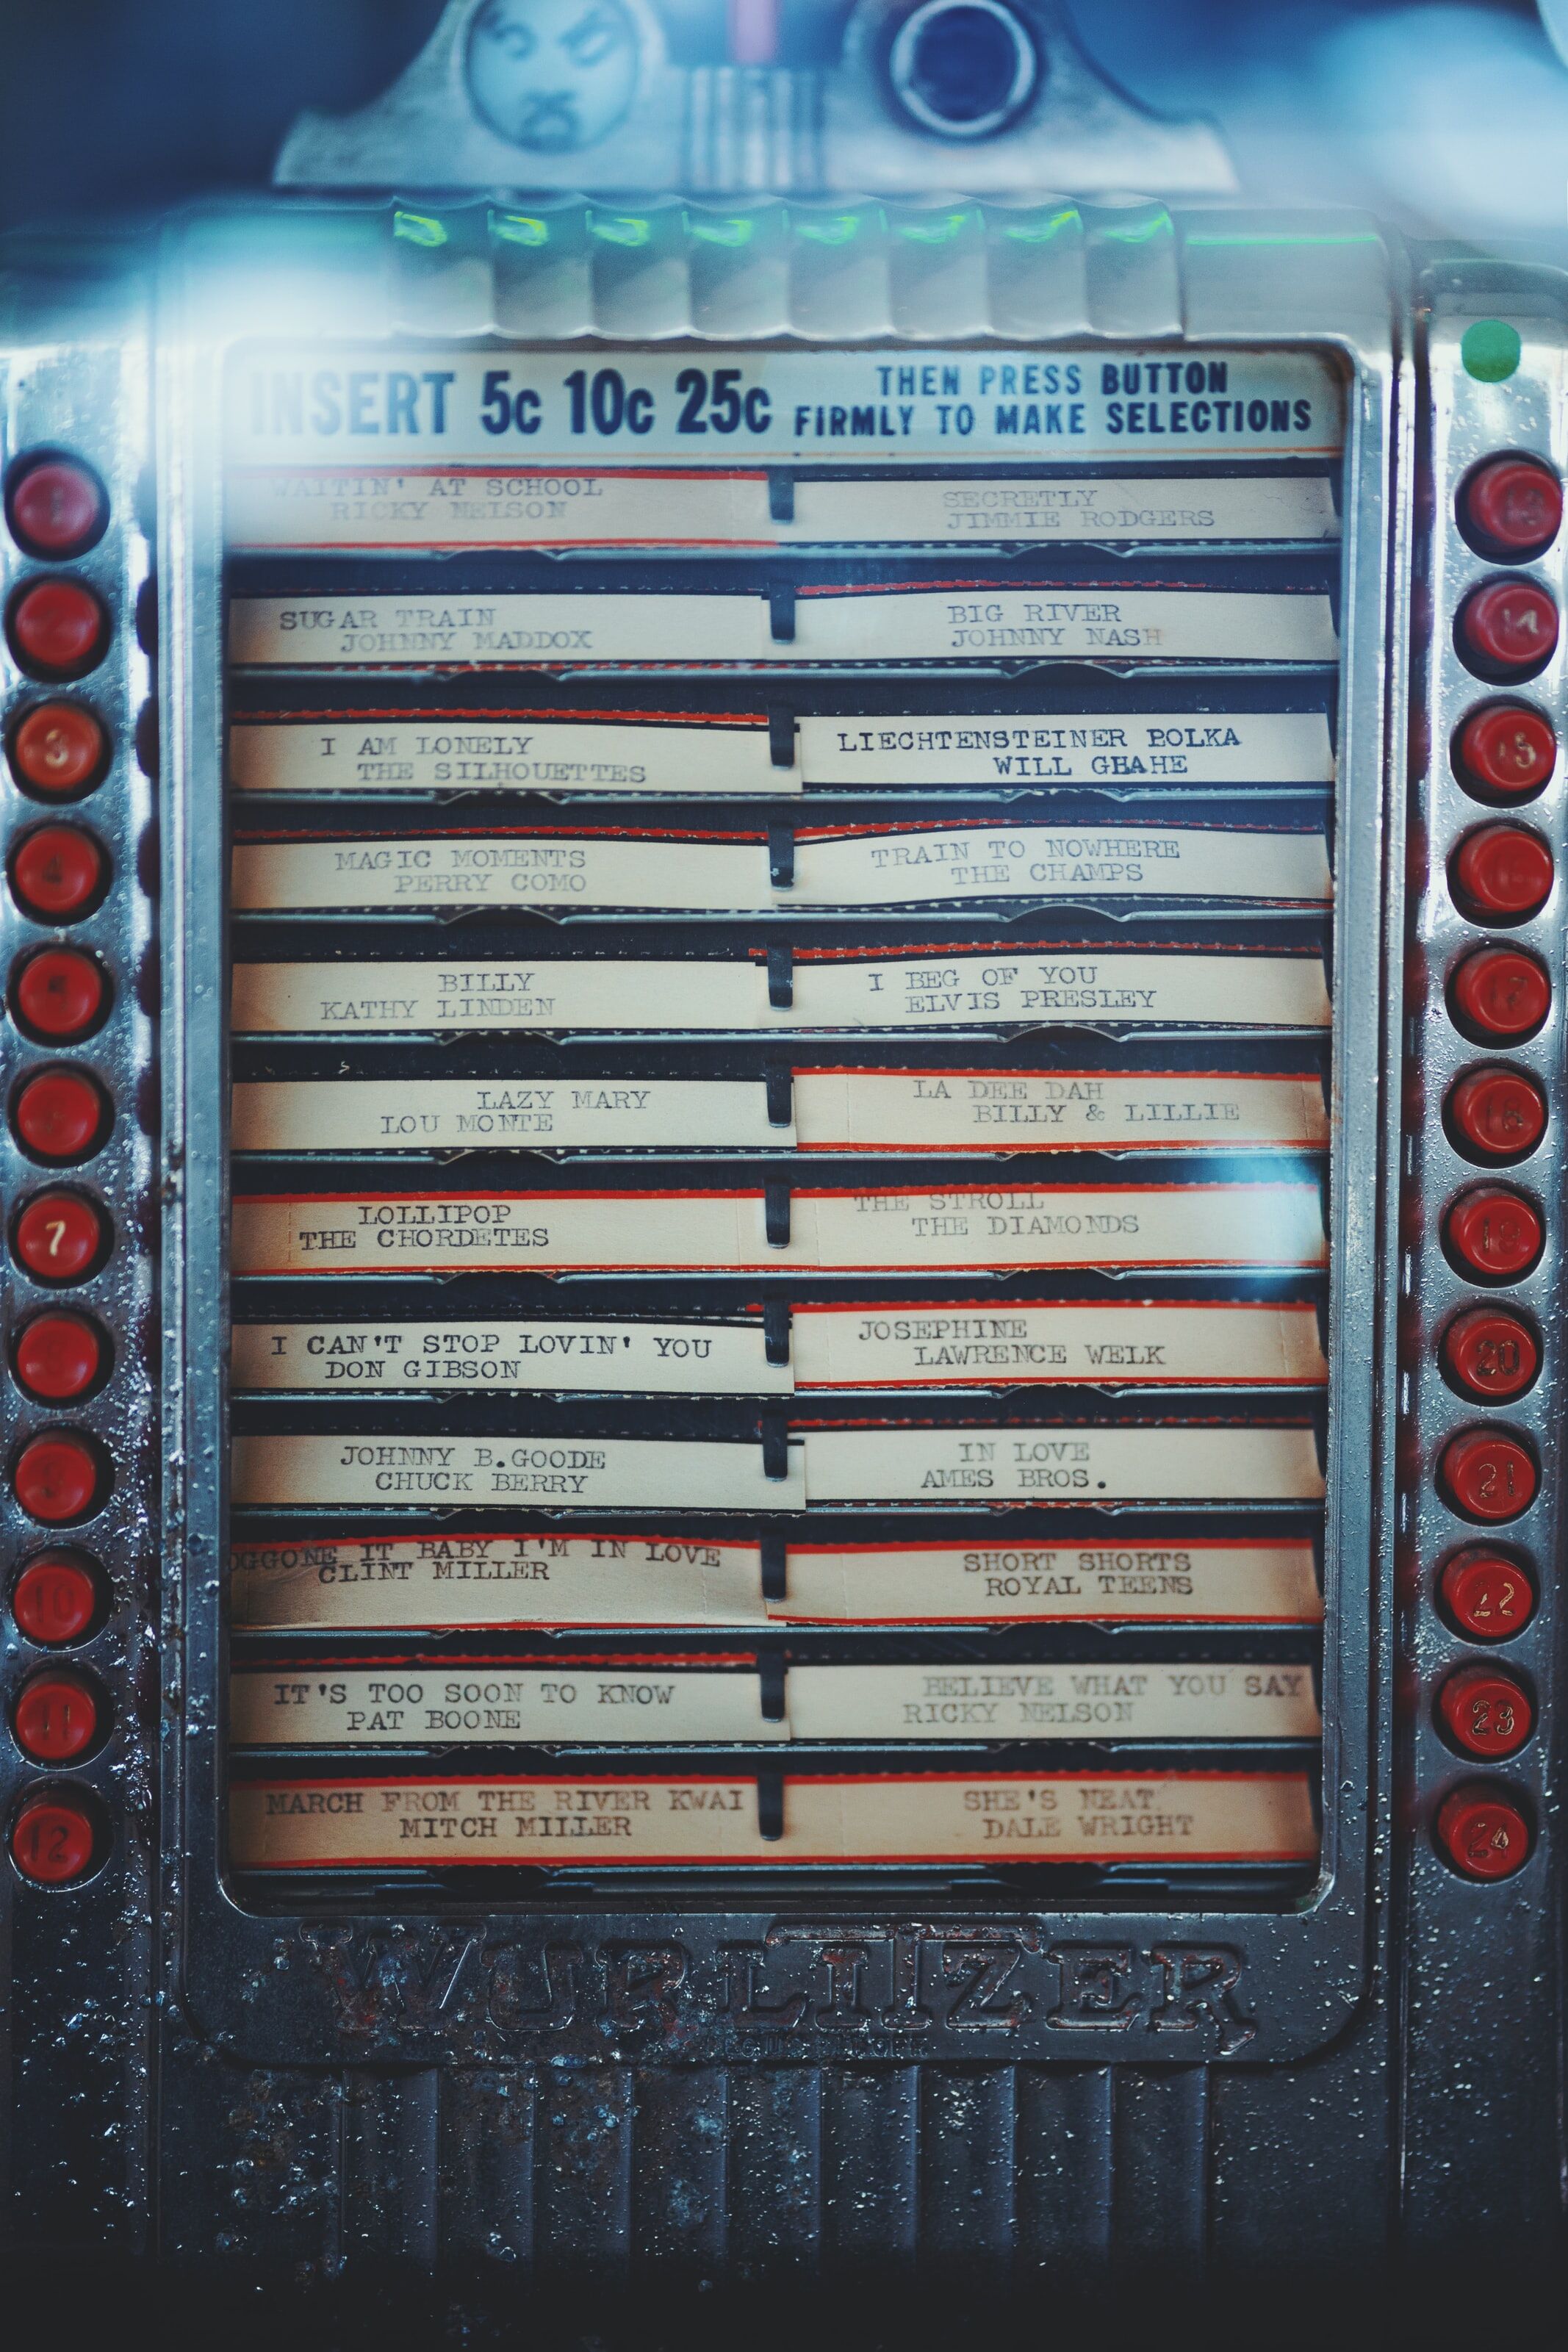 INSERT 5c 10c 25c
THEN PRESS BUTTON
FIRMLY TO MAKE SELECTIONS
WAITIN' AT SCHOOL
RICKY NELSON
SECRETLY
JIMMIE RODGERS
SUGAR TRAIN
JOHNNY MADDOX
BIG RIVER
JOHNNY NASH
3
I AM LONELY
THE SILHOUETTES
LIECHTENSTEINER POLKA
WILL GHAHE
15
4
MAGIC MOMENTS
PERRY COMO
TRAIN TO NOWHERE
THE CHAMPS
BILLY
KATHY LINDEN
I BEG OF YOU
ELVIS PRESLEY
17
LAZY MARY
LOU MONTE
LA DEE DAH
BILLY & LILLIE
18
7
LOLLIPOP
THE CHORDETES
THE STROLL
THE DIAMONDS
19
I CAN'T STOP LOVIN' YOU
DON GIBSON
JOSEPHINE
LAWRENCE WELK
20
JOHNNY B.GOODE
CHUCK BERRY
IN LOVE
AMES BROS.
21
10
OGGONE IT BABY I'M IN LOVE
CLINT MILLER
SHORT SHORTS
ROYAL TEENS
22
11
IT'S TOO SOON TO KNOW
PAT BOONE
BELIEVE WHAT YOU SAY
RICKY NELSON
23
12
MARCH FROM THE RIVER KWAI
MITCH MILLER
SHE'S NEAT
DALE WRIGHT
24
WURLITZER